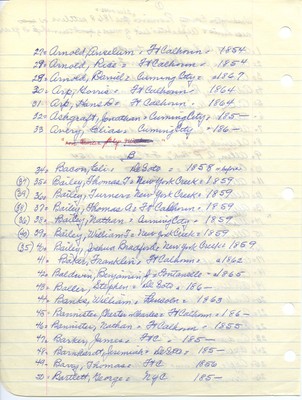 27. Arnold, Anselum - Ft Calhoun - 1854
29. Arnold, Rice - Ft Calhoun - 1854
28. Arnold, Daniel - Cuming City - 1867
30. Arp, Gorris - Ft Calhoun 1864
31. Arp, Hans - Ft Calhoun. 1864
32. Ashcraft, Jonathan - Cuming City - 185-
33 Avery, Elias - Cuming City - 186-
B
34. Bacon, Eli - DeSoto - 1858
(37) 35. Bailey, Thomas J - New York Creek - 1859
36. Bailey, Turner - New York Creek - 1859
37. Bailey, Thomas A. - Ft Calhoun - 1859
38. Bailey, Nathan - Cuming City - 1859
39. Bailey, William J - New York Creek - 1859
(35) 40. Bailey, Joshua Bradford - New York Creek - 1859
41. Baker, Franklin - Ft Calhoun - 1862
42. Baldwin, Benjamin J - Fontanelle - 1865
43. Baller, Stephen - DeSoto - 186-
44. Banks, William - 1863
45. Bannister, Chester - Ft Calhoun - 186-
46. Bannister, Nathan - Ft Calhoun - 1855
47. Barker, James - Ft C. - 185-
48. Barnhardt, Jeremiah - DeSoto - 185-
49. Barry, Thomas Ft C 1856
50. Bartlett, George - NYC 185-